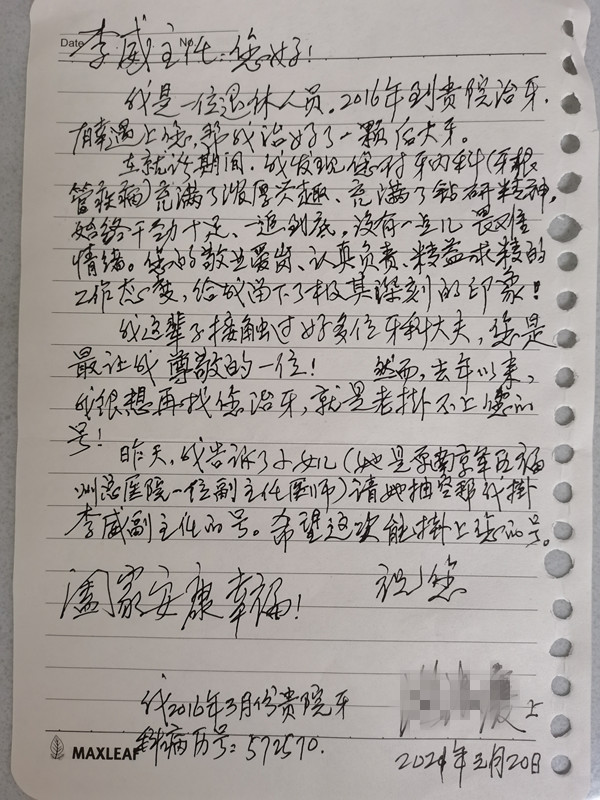 Date
No
李威主任:您好!
我是一位退休人员,2016年到贵院治牙,
有幸遇上您,帮我治好了一颗后大牙。
在就诊期间,我发现您对牙内科(牙根
管疾病)充满了浓厚兴趣、充满了钻研精神,
始终干劲十足、一追到底,没有一点儿畏难
情绪。您的敬业爱岗、认真负责、精益求精的
工作态度,给我留下了极其深刻的印象!
我这辈子接触过好多位牙科大夫,您是
最让我尊敬的一位! 然而,去年以来,
我很想再找您治牙,就是老挂不上您的
号!
昨天,我告诉了小女儿(她是原南京军区福
州总医院一位副主任医师)请她抽空帮我挂
李威副主任的号。希望这次能挂上您的号。
祝您
阖家安康幸福!
我2016年3月份贵院牙
科病历号:572570.
上
MAXLEAF
2021年三月20日